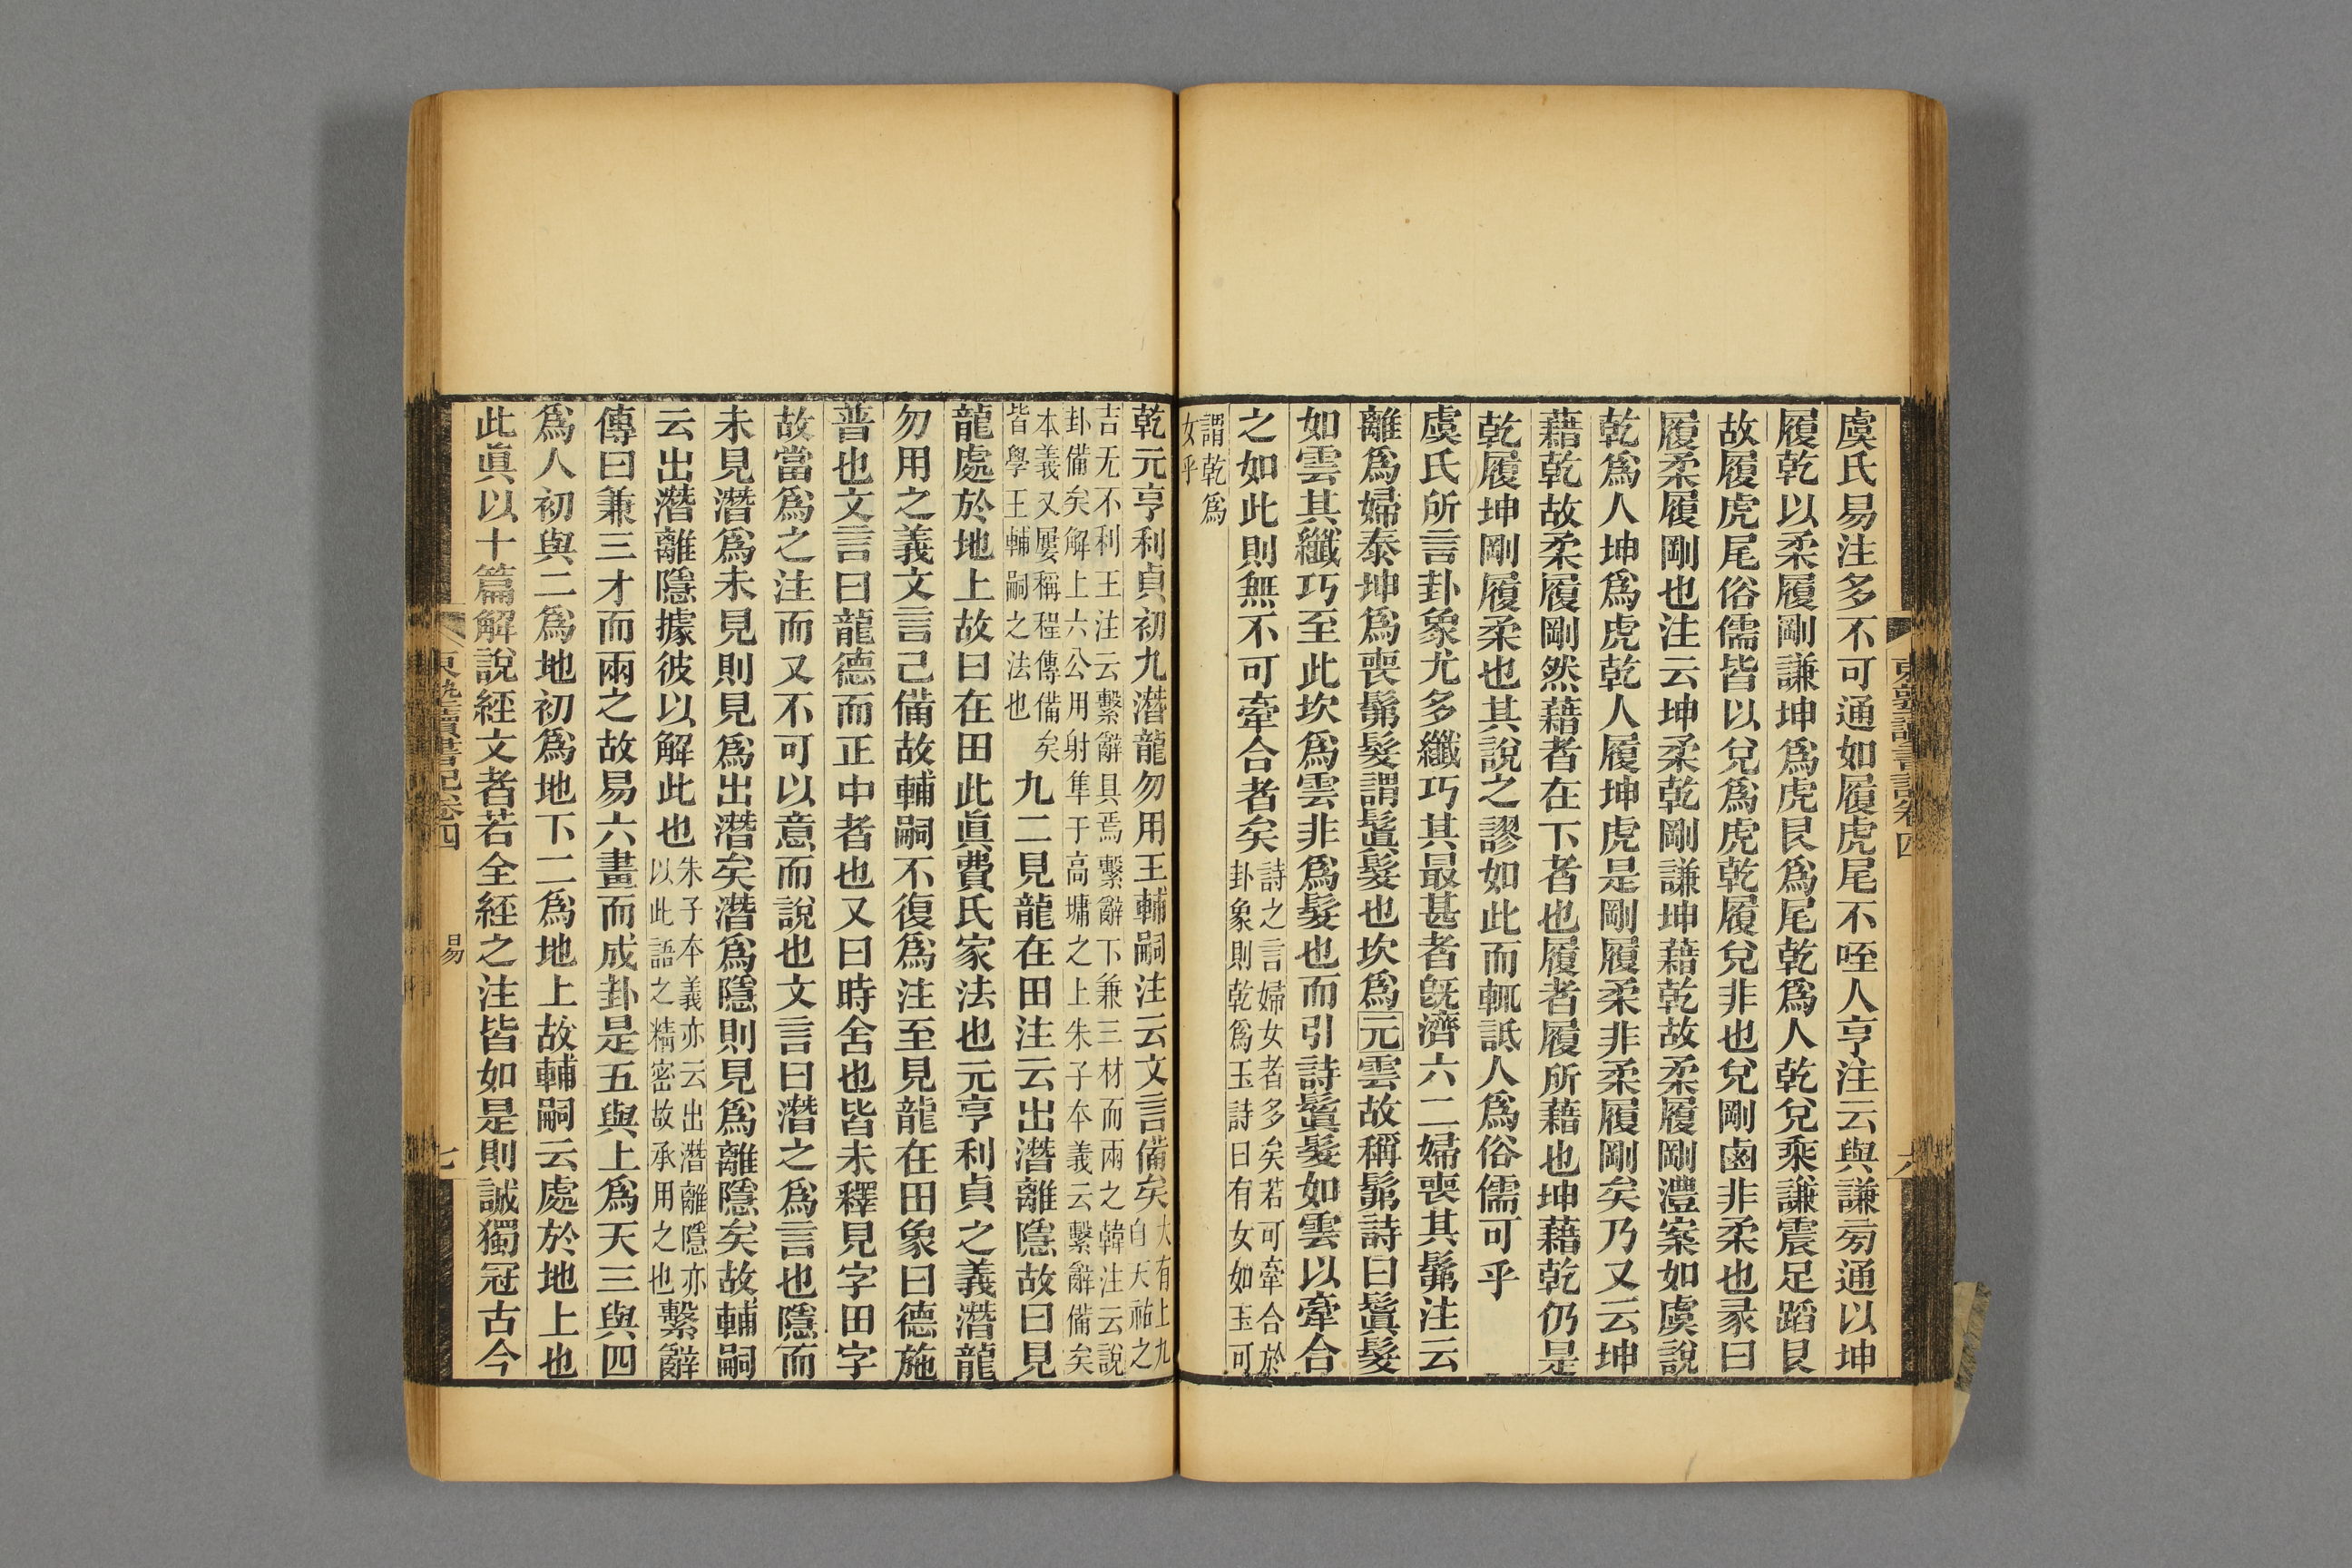 虞氏易注多不可通如履虎尾不咥人亨注云與謙旁通以坤
履乾以柔履剛謙坤爲虎艮爲尾乾爲人乾兌乘謙震足蹈艮
故履虎尾俗儒皆以兌爲虎乾履兌非也兌剛鹵非柔也彖曰
履柔履剛也注云坤柔乾剛謙坤藉乾故柔履剛澧案如虞說
乾爲人坤爲虎乾人履坤虎是剛履柔非柔履剛矣乃又云坤
藉乾故柔履剛然藉者在下者也履者履所藉也坤藉乾仍是
乾履坤剛履柔也其說之謬如此而輒詆人爲俗儒可乎
虞氏所言卦象尤多纖巧其最甚者旣濟六二婦喪其髴注云
離爲婦泰坤爲喪髴髮謂鬒髮也坎爲元雲故稱髴詩曰鬒髮
如雲其纖巧至此坎爲雲非爲髮也而引詩鬒髮如雲以牽合
之如此則無不可牽合者矣詩之言婦女者多矣若可牽合於
卦象則乾爲玉詩曰有女如玉可
謂乾爲
女乎
東塾讀書記卷四
六
乾元亨利貞初九潛龍勿用王輔嗣注云文言備矣大有上九
自天祐之
吉无不利王注云繫辭具焉繫辭下兼三材而兩之韓注云說
卦備矣解上六公用射隼于高墉之上朱子本義云繫辭備矣
本義又屢稱程傳備矣
皆學王輔嗣之法也
九二見龍在田注云出潛離隱故曰見
龍處於地上故曰在田此眞費氏家法也元亨利貞之義潛龍
勿用之義文言已備故輔嗣不復爲注至見龍在田象曰德施
普也文言曰龍德而正中者也又曰時舍也皆未釋見字田字
故當爲之注而又不可以意而說也文言曰潛之爲言也隱而
未見潛爲未見則見爲出潛矣潛爲隱則見爲離隱矣故輔嗣
云出潛離隱據彼以解此也朱子本義亦云出潛離隱亦
以此語之精密故承用之也
繫辭
傳曰兼三才而兩之故易六畫而成卦是五與上爲天三與四
爲人初與二爲地初爲地下二爲地上故輔嗣云處於地上也
此眞以十篇解說經文者若全經之注皆如是則誠獨冠古今
東塾讀書記卷四
易
七